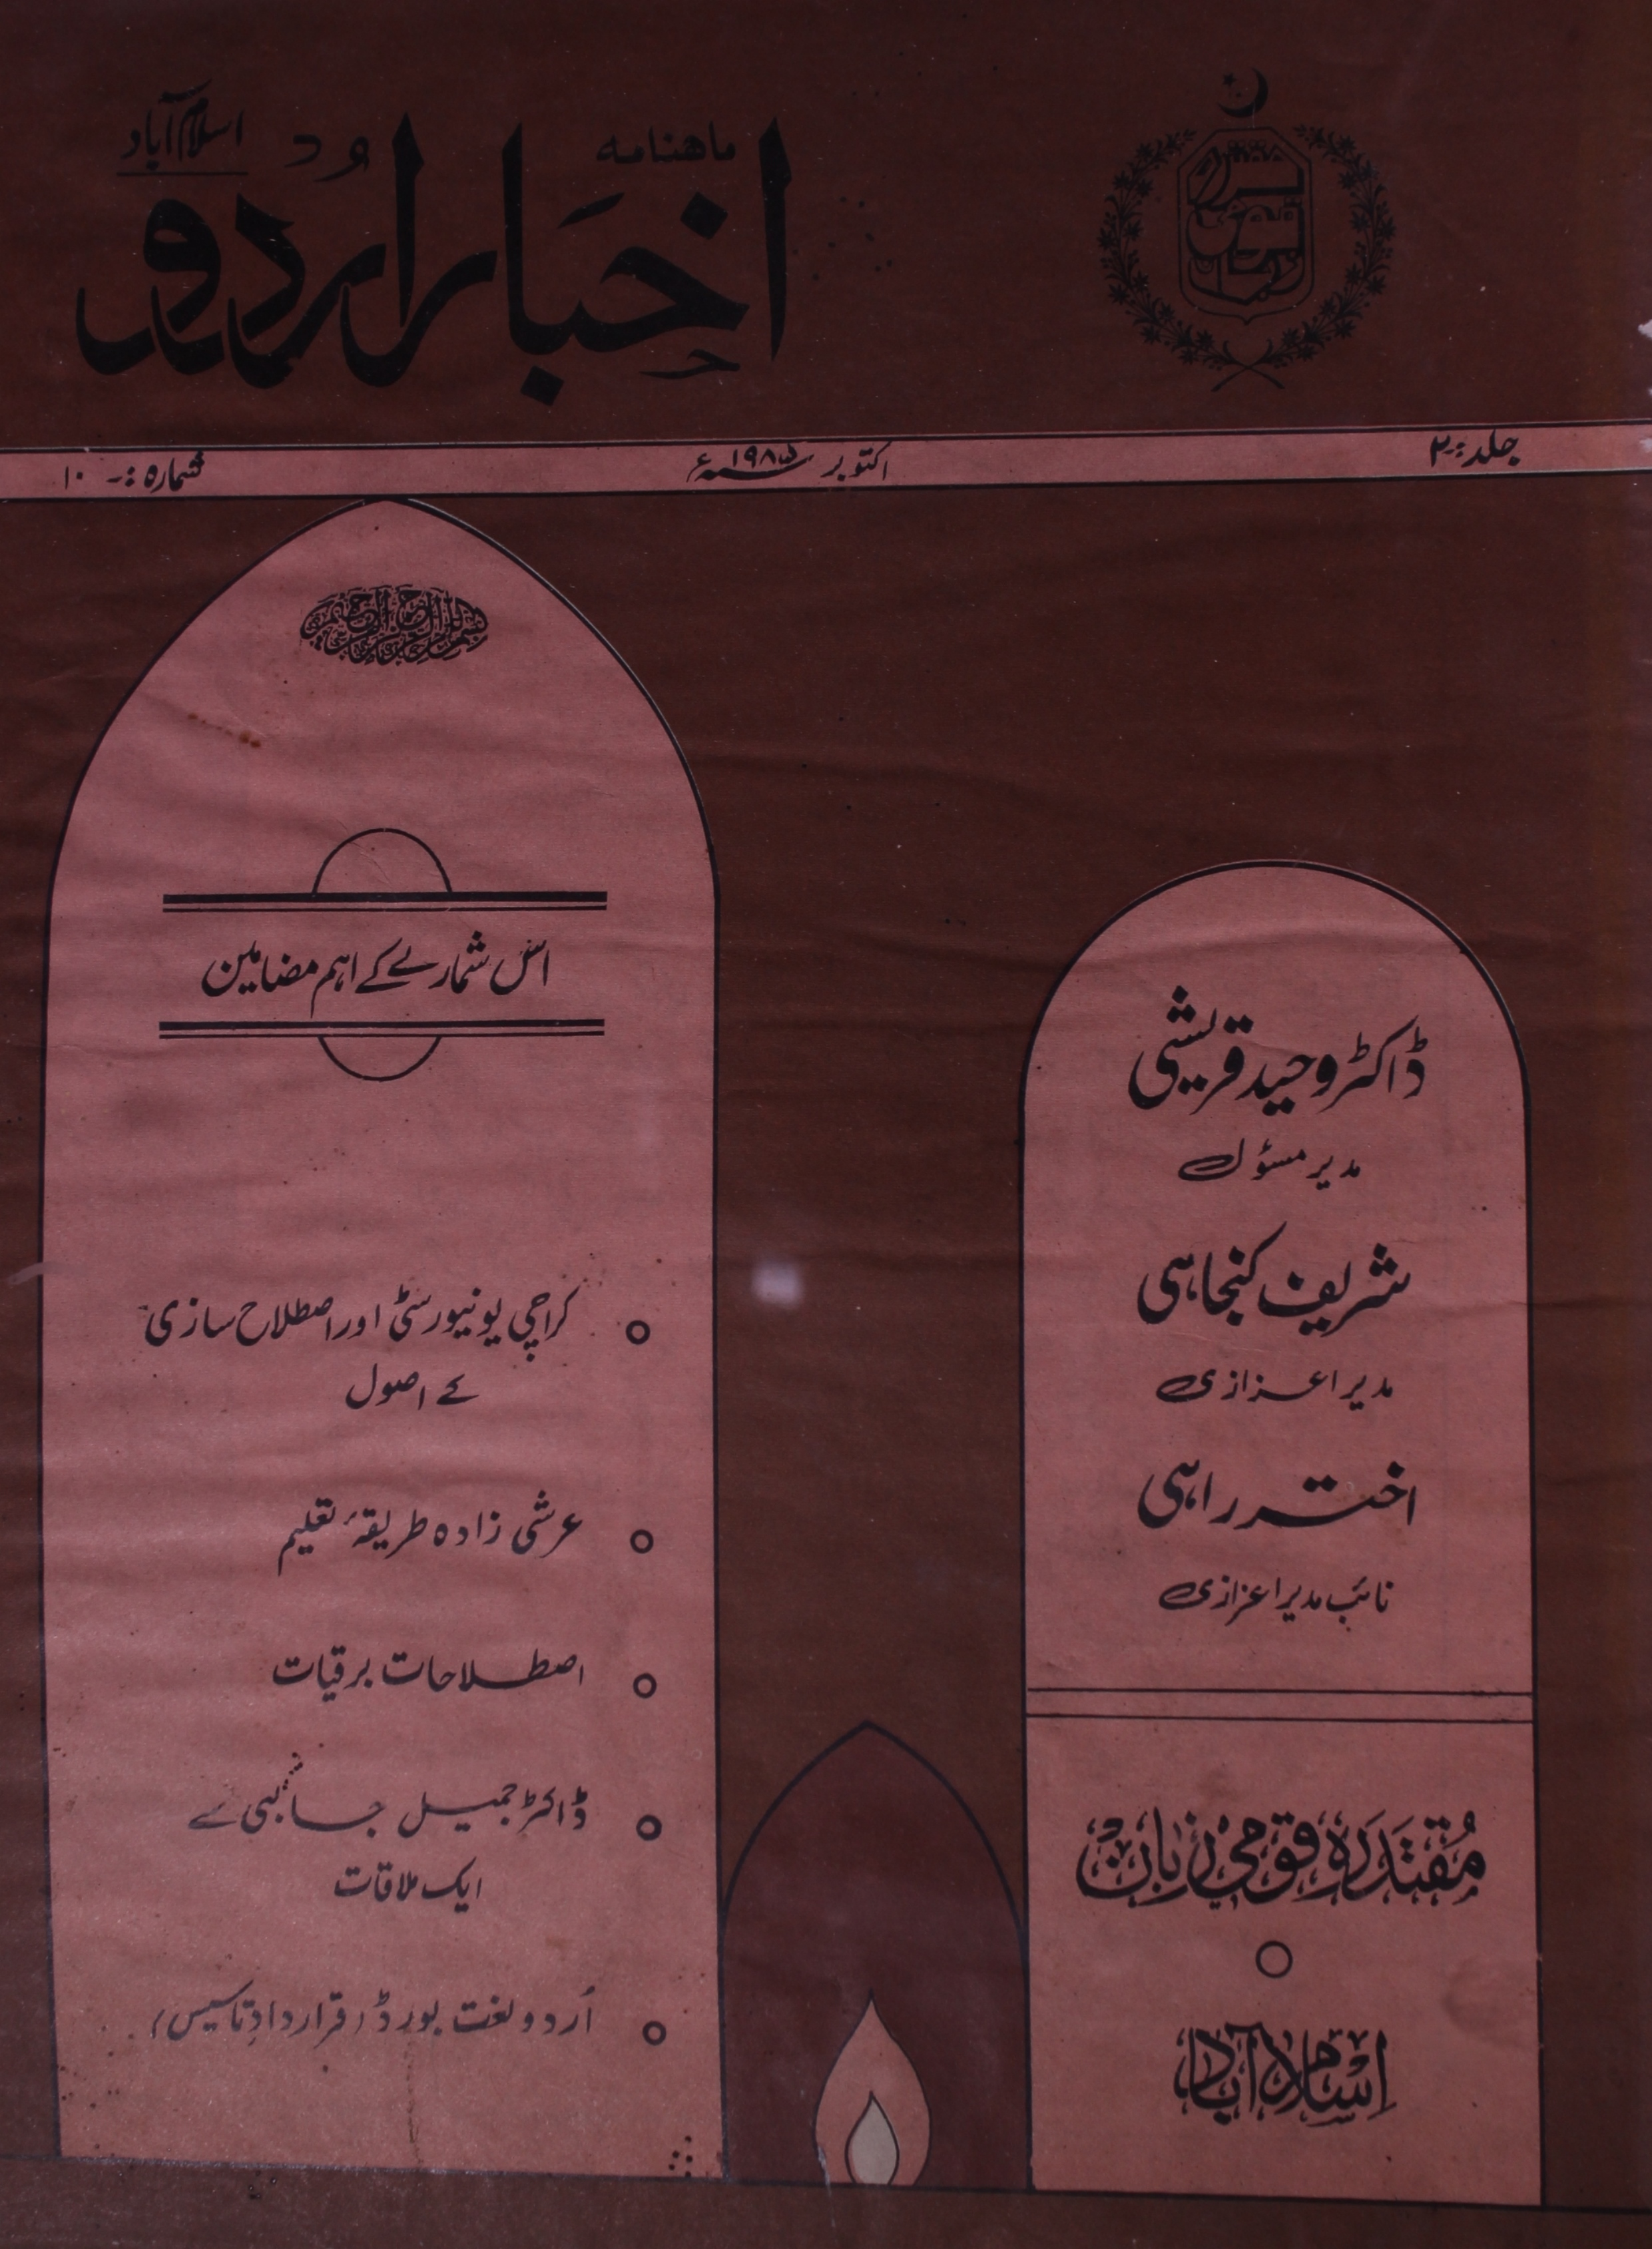 ماهنامه
اخبار اردو
اسلام آباد
مقتدرہ
قومی
زبان
جلد :- ۲
اکتوبر ۱۹۸۵ء
شمارہ :- ۱۰
بسم اللہ الرحمن الرحیم
اس شمارے کے اہم مضامین
کراچی یونیورسٹی اور اصطلاح سازی
کے اصول
عرشی زادہ طریقۂ تعلیم
اصطلاحات برقیات
ڈاکٹر جمیل جالبی سے
ایک ملاقات
اُردو لغت بورڈ (قراردادِ تاسیس)
ڈاکٹر وحید قریشی
مدیر مسئول
شریف کنجاہی
مدیر اعزازی
اختر راہی
نائب مدیر اعزازی
مُقتَدَرہ قومی زبان
اسلام آباد